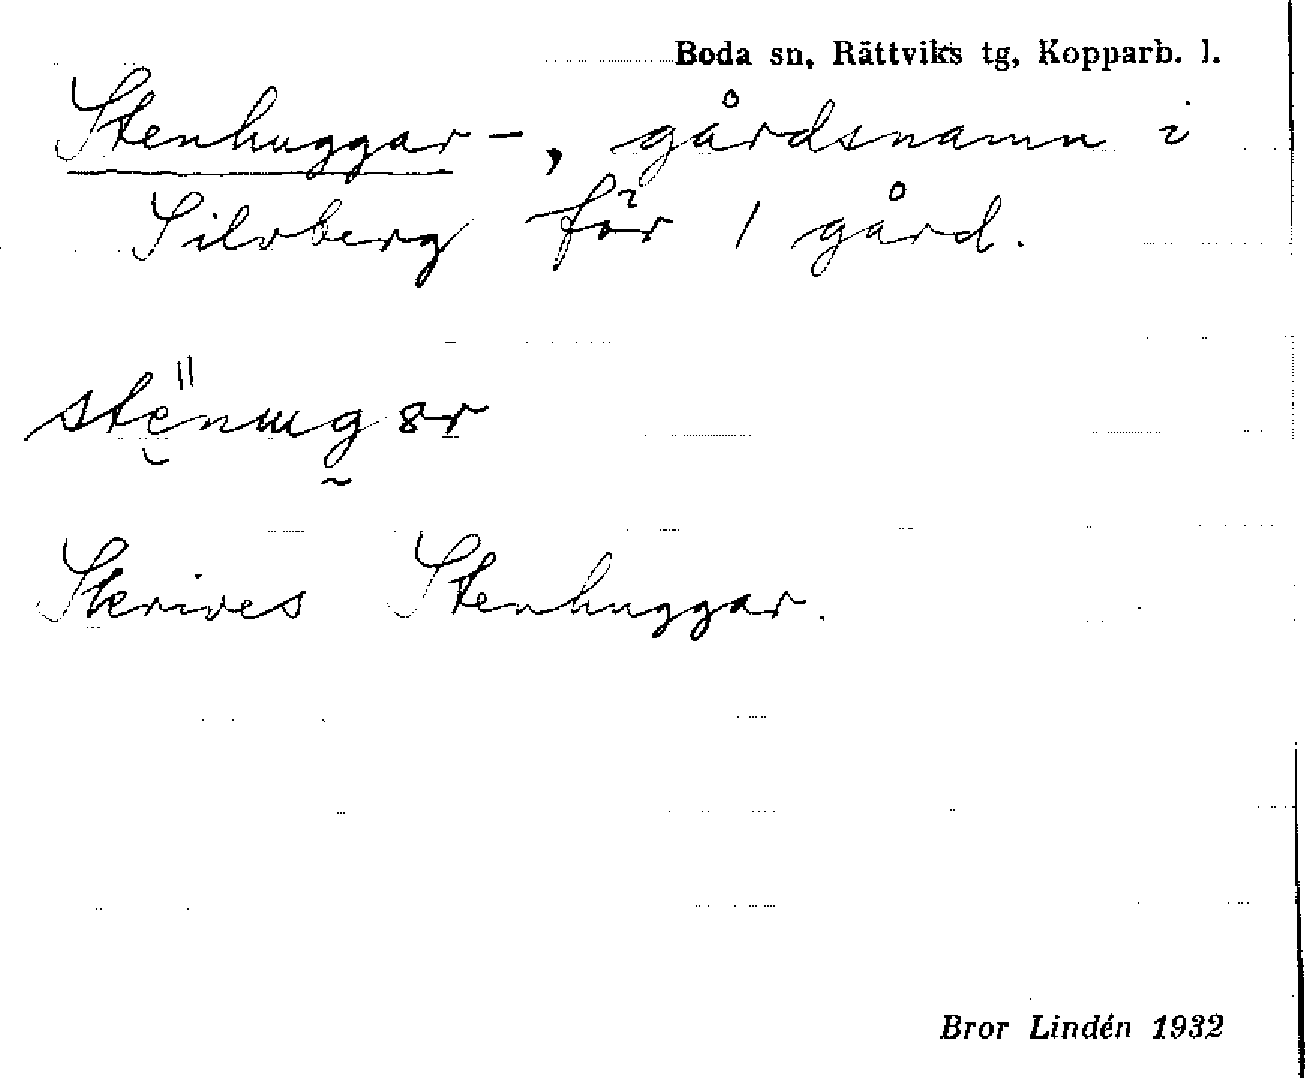 Boda sn, Rättviks tg, Kopparb. l.
Stenhuggar-, gårdsnamn i
Silvberg för 1 gård.
Skrives Stenhuggar.
Bror Lindén 1932